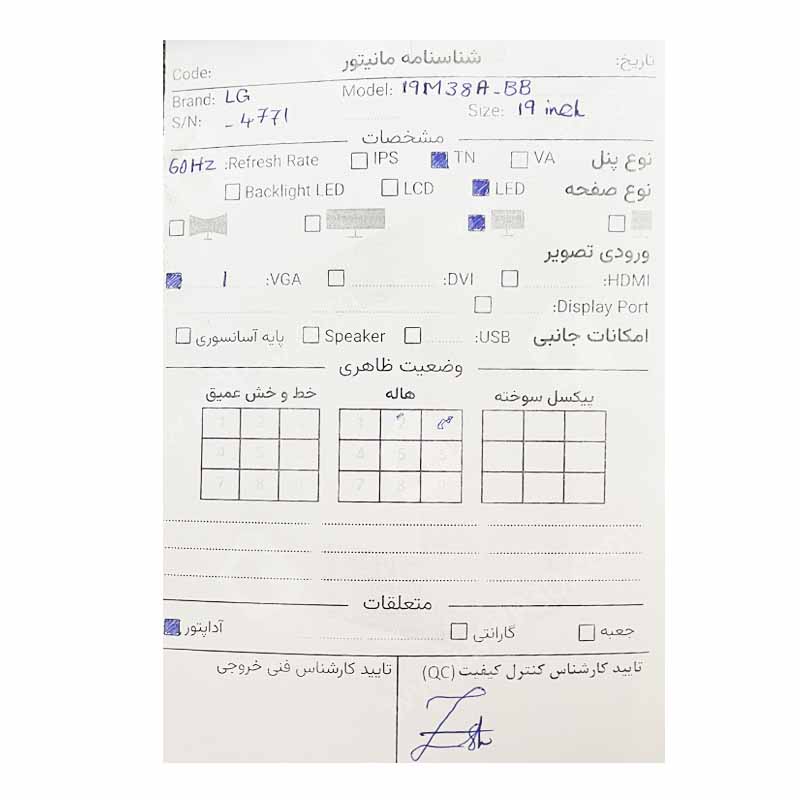 شناسنامه مانیتور
تاریخ:
Code:
Brand: LG Model: 19M38A-BB
S/N: -4771 Size: 19 inch
مشخصات
نوع پنل VA TN IPS Refresh Rate: 60Hz
نوع صفحه LED LCD Backlight LED
ورودی تصویر
HDMI: DVI: VGA: 1
Display Port:
امکانات جانبی USB: Speaker پایه آسانسوری
وضعیت ظاهری
پیکسل سوخته هاله خط و خش عمیق
1 2 1 2
4 5 6 4 5
7 8 9 7 8 9
متعلقات
جعبه گارانتی آداپتور
تایید کارشناس کنترل کیفیت (QC) تایید کارشناس فنی خروجی